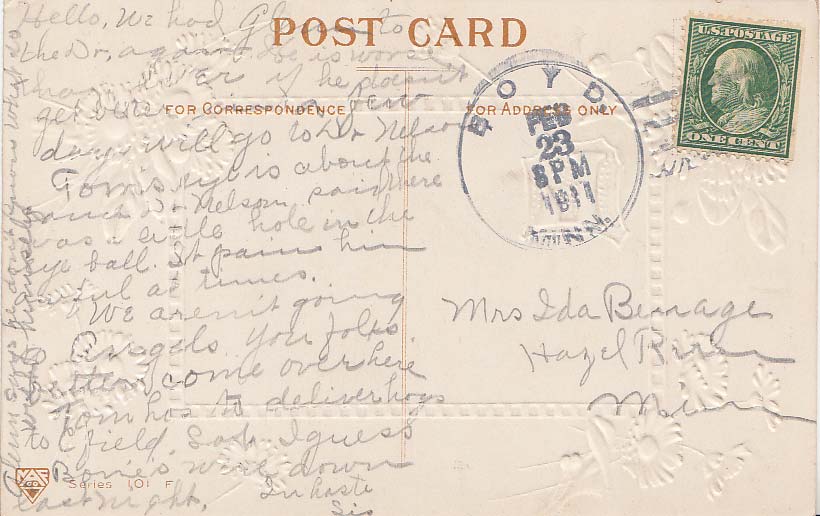 POST CARD
FOR CORRESPONDENCE
FOR ADDRESS ONLY
U.S. POSTAGE
ONE CENT
BOYD
FEB
23
8 PM
1911
MINN.
Hello, We had Glenn to
the Dr. again. He is worse
than ever if he doesn't
get better in a few
days will go to Dr Nelson
Tom's eye is about the
same Dr Nelson said there
was a little hole in the
eye ball. It pains him
awful at times.
We aren't going
to you folks
better come over here
Tom has to deliver hogs
to C field. Sat. I guess
Bonie's were down
last night.
In haste
Sis
Glenn says he don't know what is
himself
Mrs Ida Benage
Hazel Run
Minn
Series 101 F